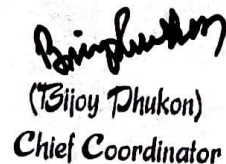 (Bijoy Phukon)
Chief Coordinator